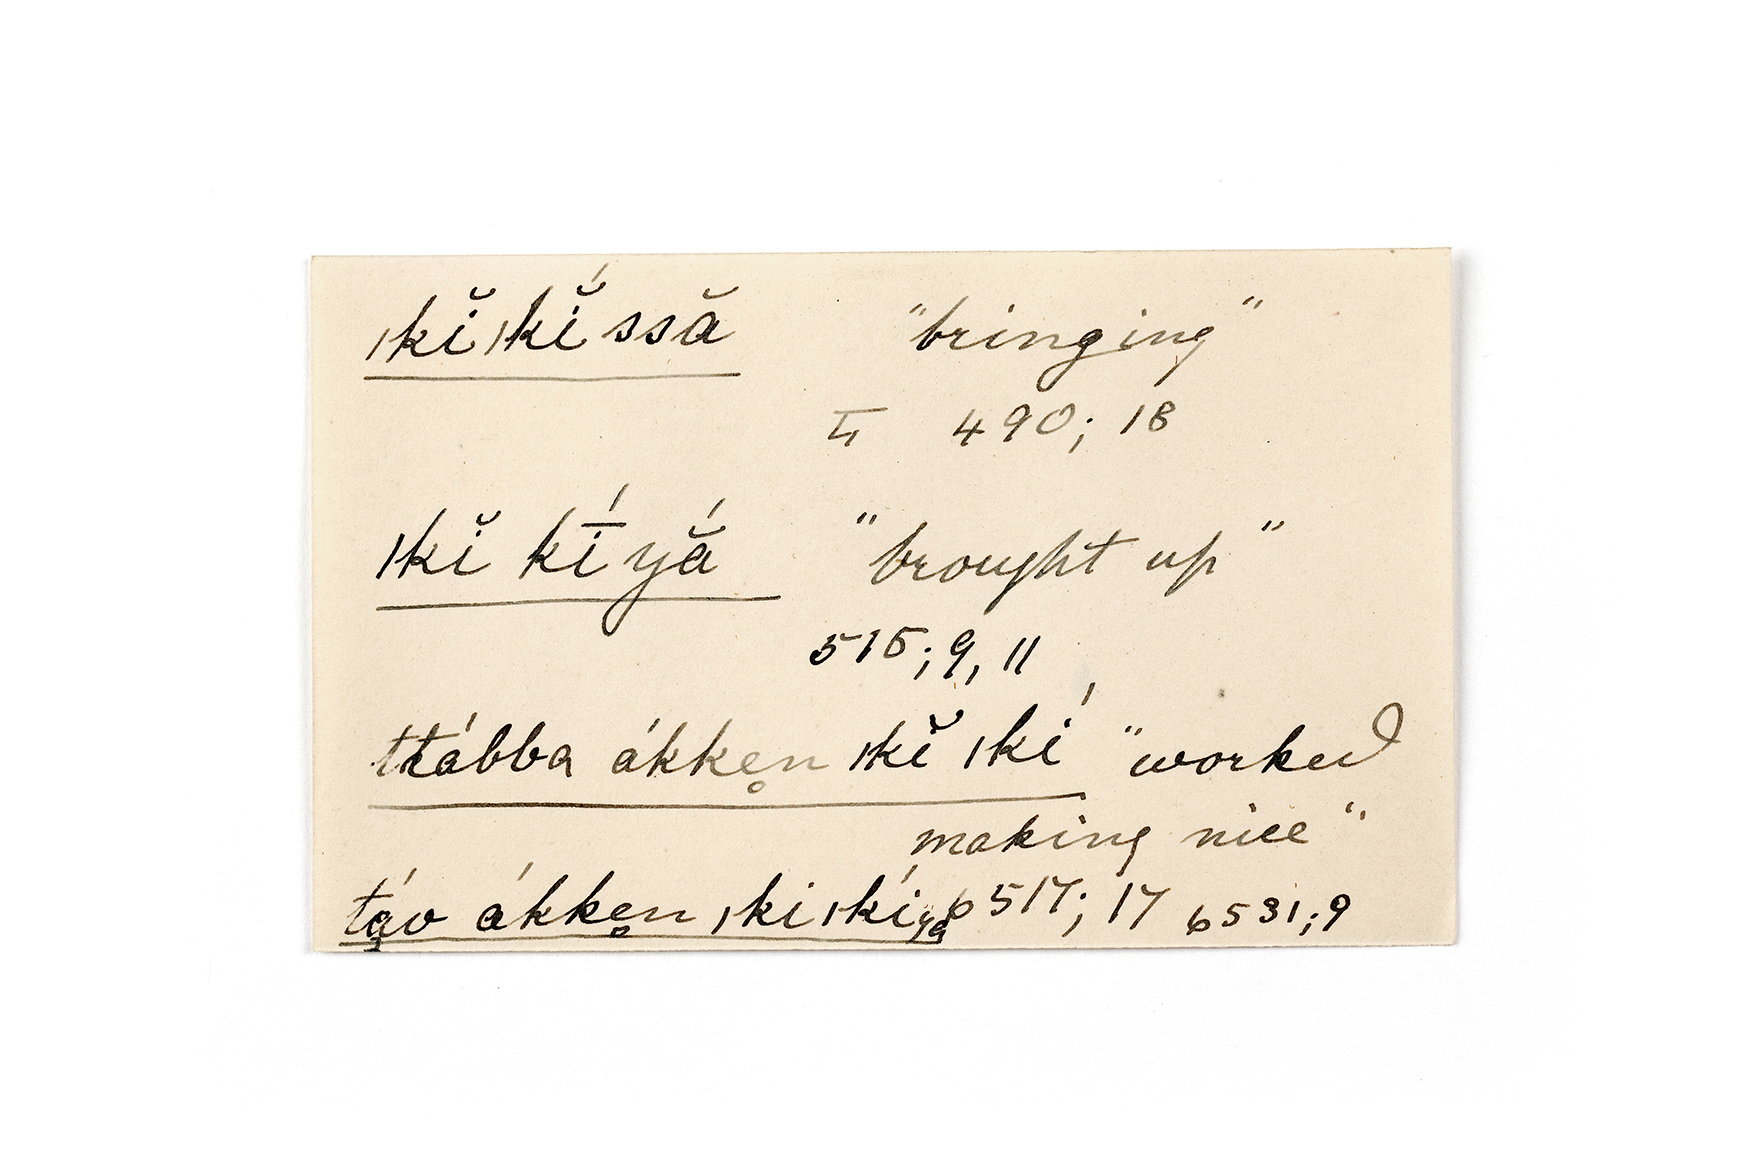 ǀkĭ ǀkĭ́ ssă "bringing"
II 490; 18
ǀkĭ kī́ yắ "brought up"
515; 9, 11
ttábba ákken̥ ǀkĭ ǀkí "worked
making nice"
táo ákken̥ ǀki ǀkí ya b 517; 17 b 531; 9